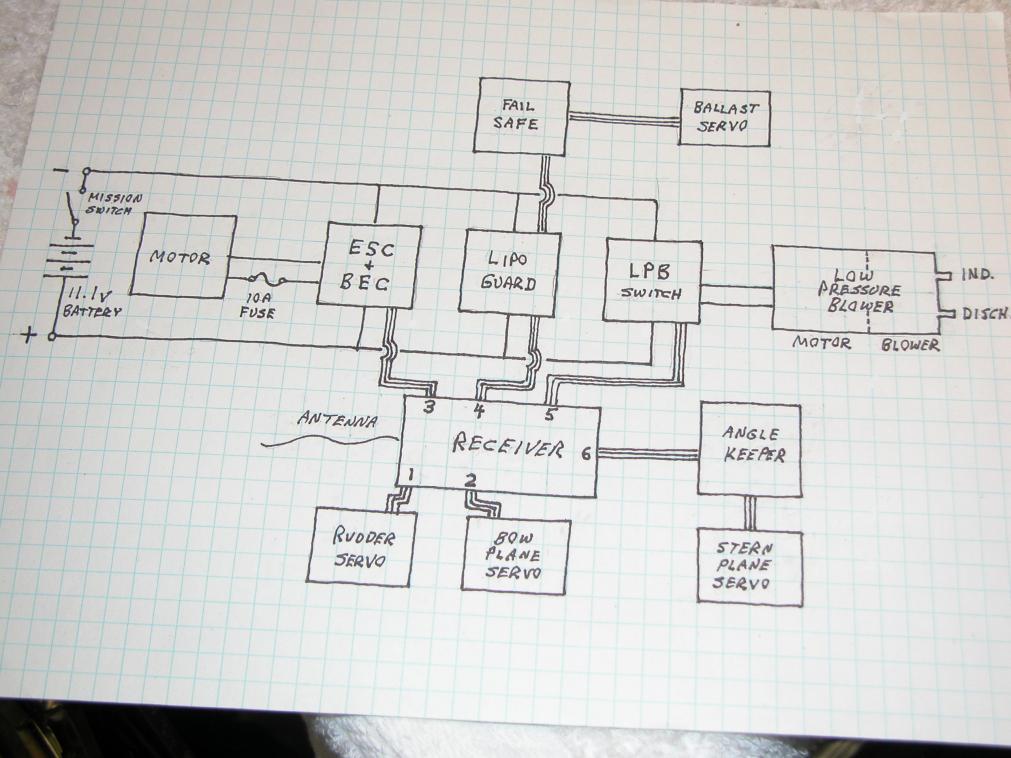 FAIL
SAFE
BALLAST
SERVO
-
MISSION
SWITCH
MOTOR
ESC
+
BEC
LIPO
GUARD
LPB
SWITCH
LOW
PRESSURE
BLOWER
IND.
DISCH
11.1V
BATTERY
10A
FUSE
+
MOTOR
BLOWER
3
4
5
ANTENNA
RECEIVER
6
ANGLE
KEEPER
1
2
RUDDER
SERVO
BOW
PLANE
SERVO
STERN
PLANE
SERVO